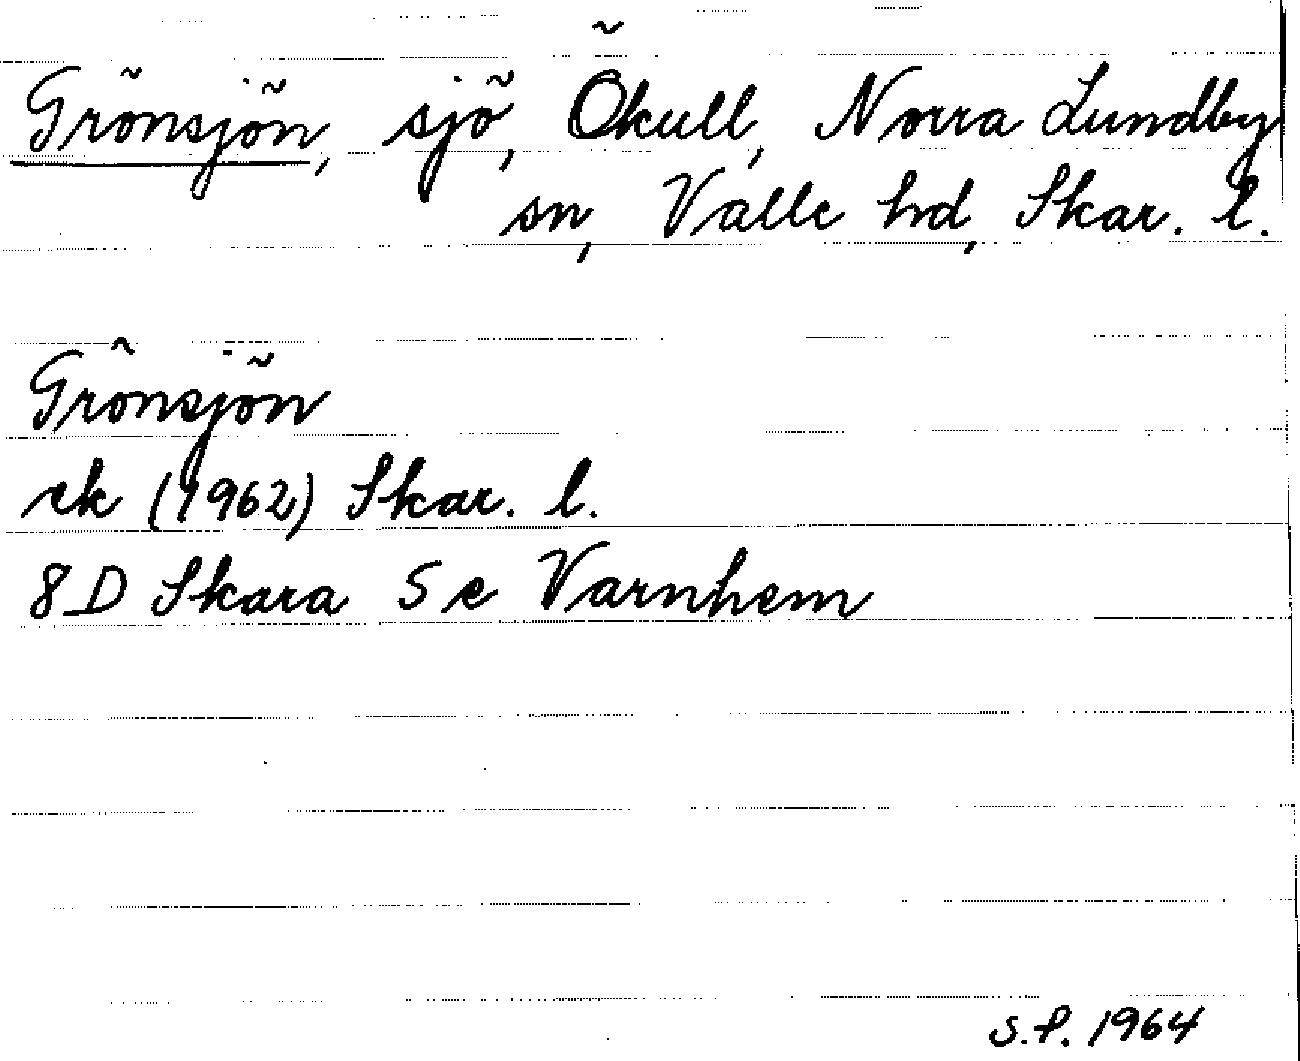 Grönsjön, sjö, Ökull, Norra Lundby
sn, Valle hd, Skar. l.
Grönsjön
ek (1962) Skar. l.
8D Skara 5e Varnhem
S.P. 1964